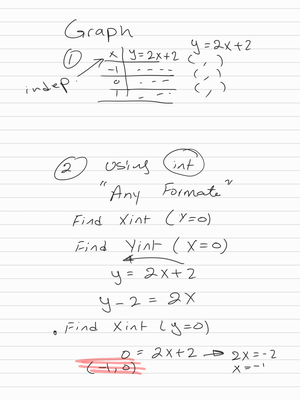 Graph
① x y=2x+2 y=2x+2
indep -1 - - - - ( , )
0 - - - - ( , )
1 - - - ( , )
② using int
"Any Formate"
Find Xint (Y=0)
Find Yint (X=0)
y = 2x+2
y-2 = 2x
• Find Xint (y=0)
0 = 2x+2 → 2x=-2
(-1,0) x=-1